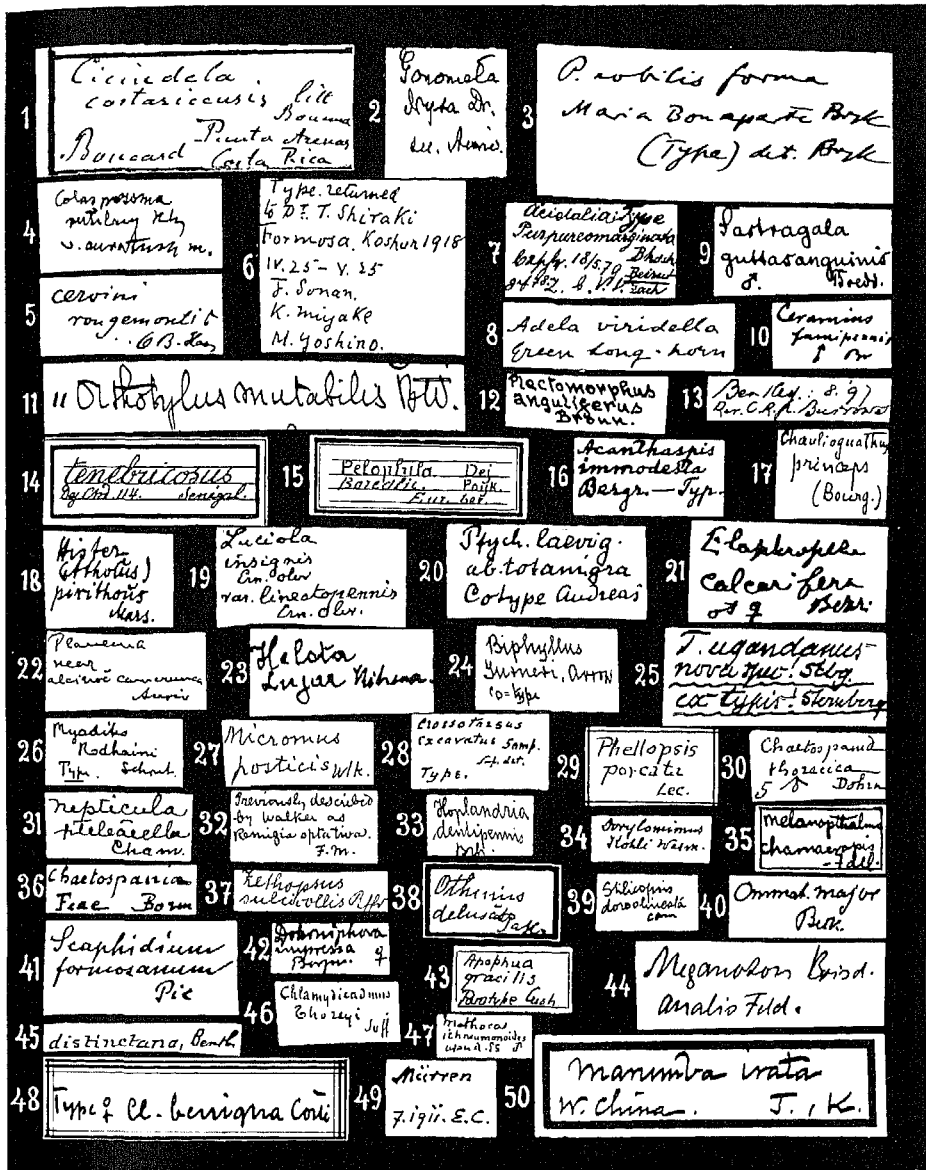 1
Cicindela
costaricensis litt
Boucard Punta Arenas
Costa Rica
2
Gonometa
Nysa Dr.
3
P. nobilis forma
Maria Bonaparte Bryk
(Type) det. Bryk
4
Colasposoma
rutilans
v. auratum m.
5
cervini
rougemonti
6
Type. returned
to Dr. T. Shiraki
Formosa. Koshun 1918
IV. 25 – V. 25
J. Sonan.
K. Miyake
M. Yoshino.
7
Acidalia Type
Purpureomarginata
Beirut
8
Adela viridella
Green Long-horn
9
Tastragala
guttasanguinis
♂. Bredd.
10
Ceramius
♂ Br
11
" Orthotylus mutabilis
12
Plactomorphus
anguligerus
Broun.
13
Bentley: 8. '97
Rev. C.R.N. Burrows
14
tenebricosus
114. Senegal.
15
Pelophila Dej
Borealis. Payk.
Eur. bor.
16
Acanthaspis
immodesta
Bergr. — Typ.
17
Chauliognathus
princeps
(Bourg.)
18
Hister
pirithous
Mars.
19
Luciola
insignis
Ern. Oliv
var. lineatopennis
Ern. Oliv.
20
Ptych. laevig.
ab. totanigra
Cotype Andreas
21
Elaphropeza
calcarifera
♂ ♀ Bezzi.
22
Planema
near
alcinoë camerunica
Auriv
23
Helota
24
Biphyllus
Turneri, Arrow
co-type
25
T. ugandanus
nova Stbg.
ex typis! Sternberg
26
Myodites
Rodhaini
Type. Schout.
27
Micromus
posticus Wlk.
28
Crossotarsus
excavatus Samp.
sp. det.
Type.
29
Phellopsis
porcata
Lec.
30
Chaetospania
thoracica
5 ♂ Dohrn
31
Nepticula
pteleaella
Cham.
32
Previously described
by Walker as
Remigia optativa.
F.M.
33
Hoplandria
dentipennis
34
Dorylomimus
Kohli Wasm.
35
melanopthalma
chamaeropis
Fall.
36
Chaetospania
Feae Borm
37
Zethopsus
sulcicollis Rffr
38
Othius
39
Stilicopsis
dorsolineata
Cam
40
Ommat. major
Berk.
41
Scaphidium
formosanum
Pic
42
Dohrniphora
impressa
♀
43
Apophua
gracilis
Cush
44
Meganoton Boisd.
analis Feld.
45
distinctana, Benth.
46
Chlamydicadmus
Thoreyi
Suff
47
Methoca
ichneumonoides
♂
48
Type ♀ Cl. benigna Corti
49
Mürren
E.C.
50
Marumba irata
W. China. J., K.